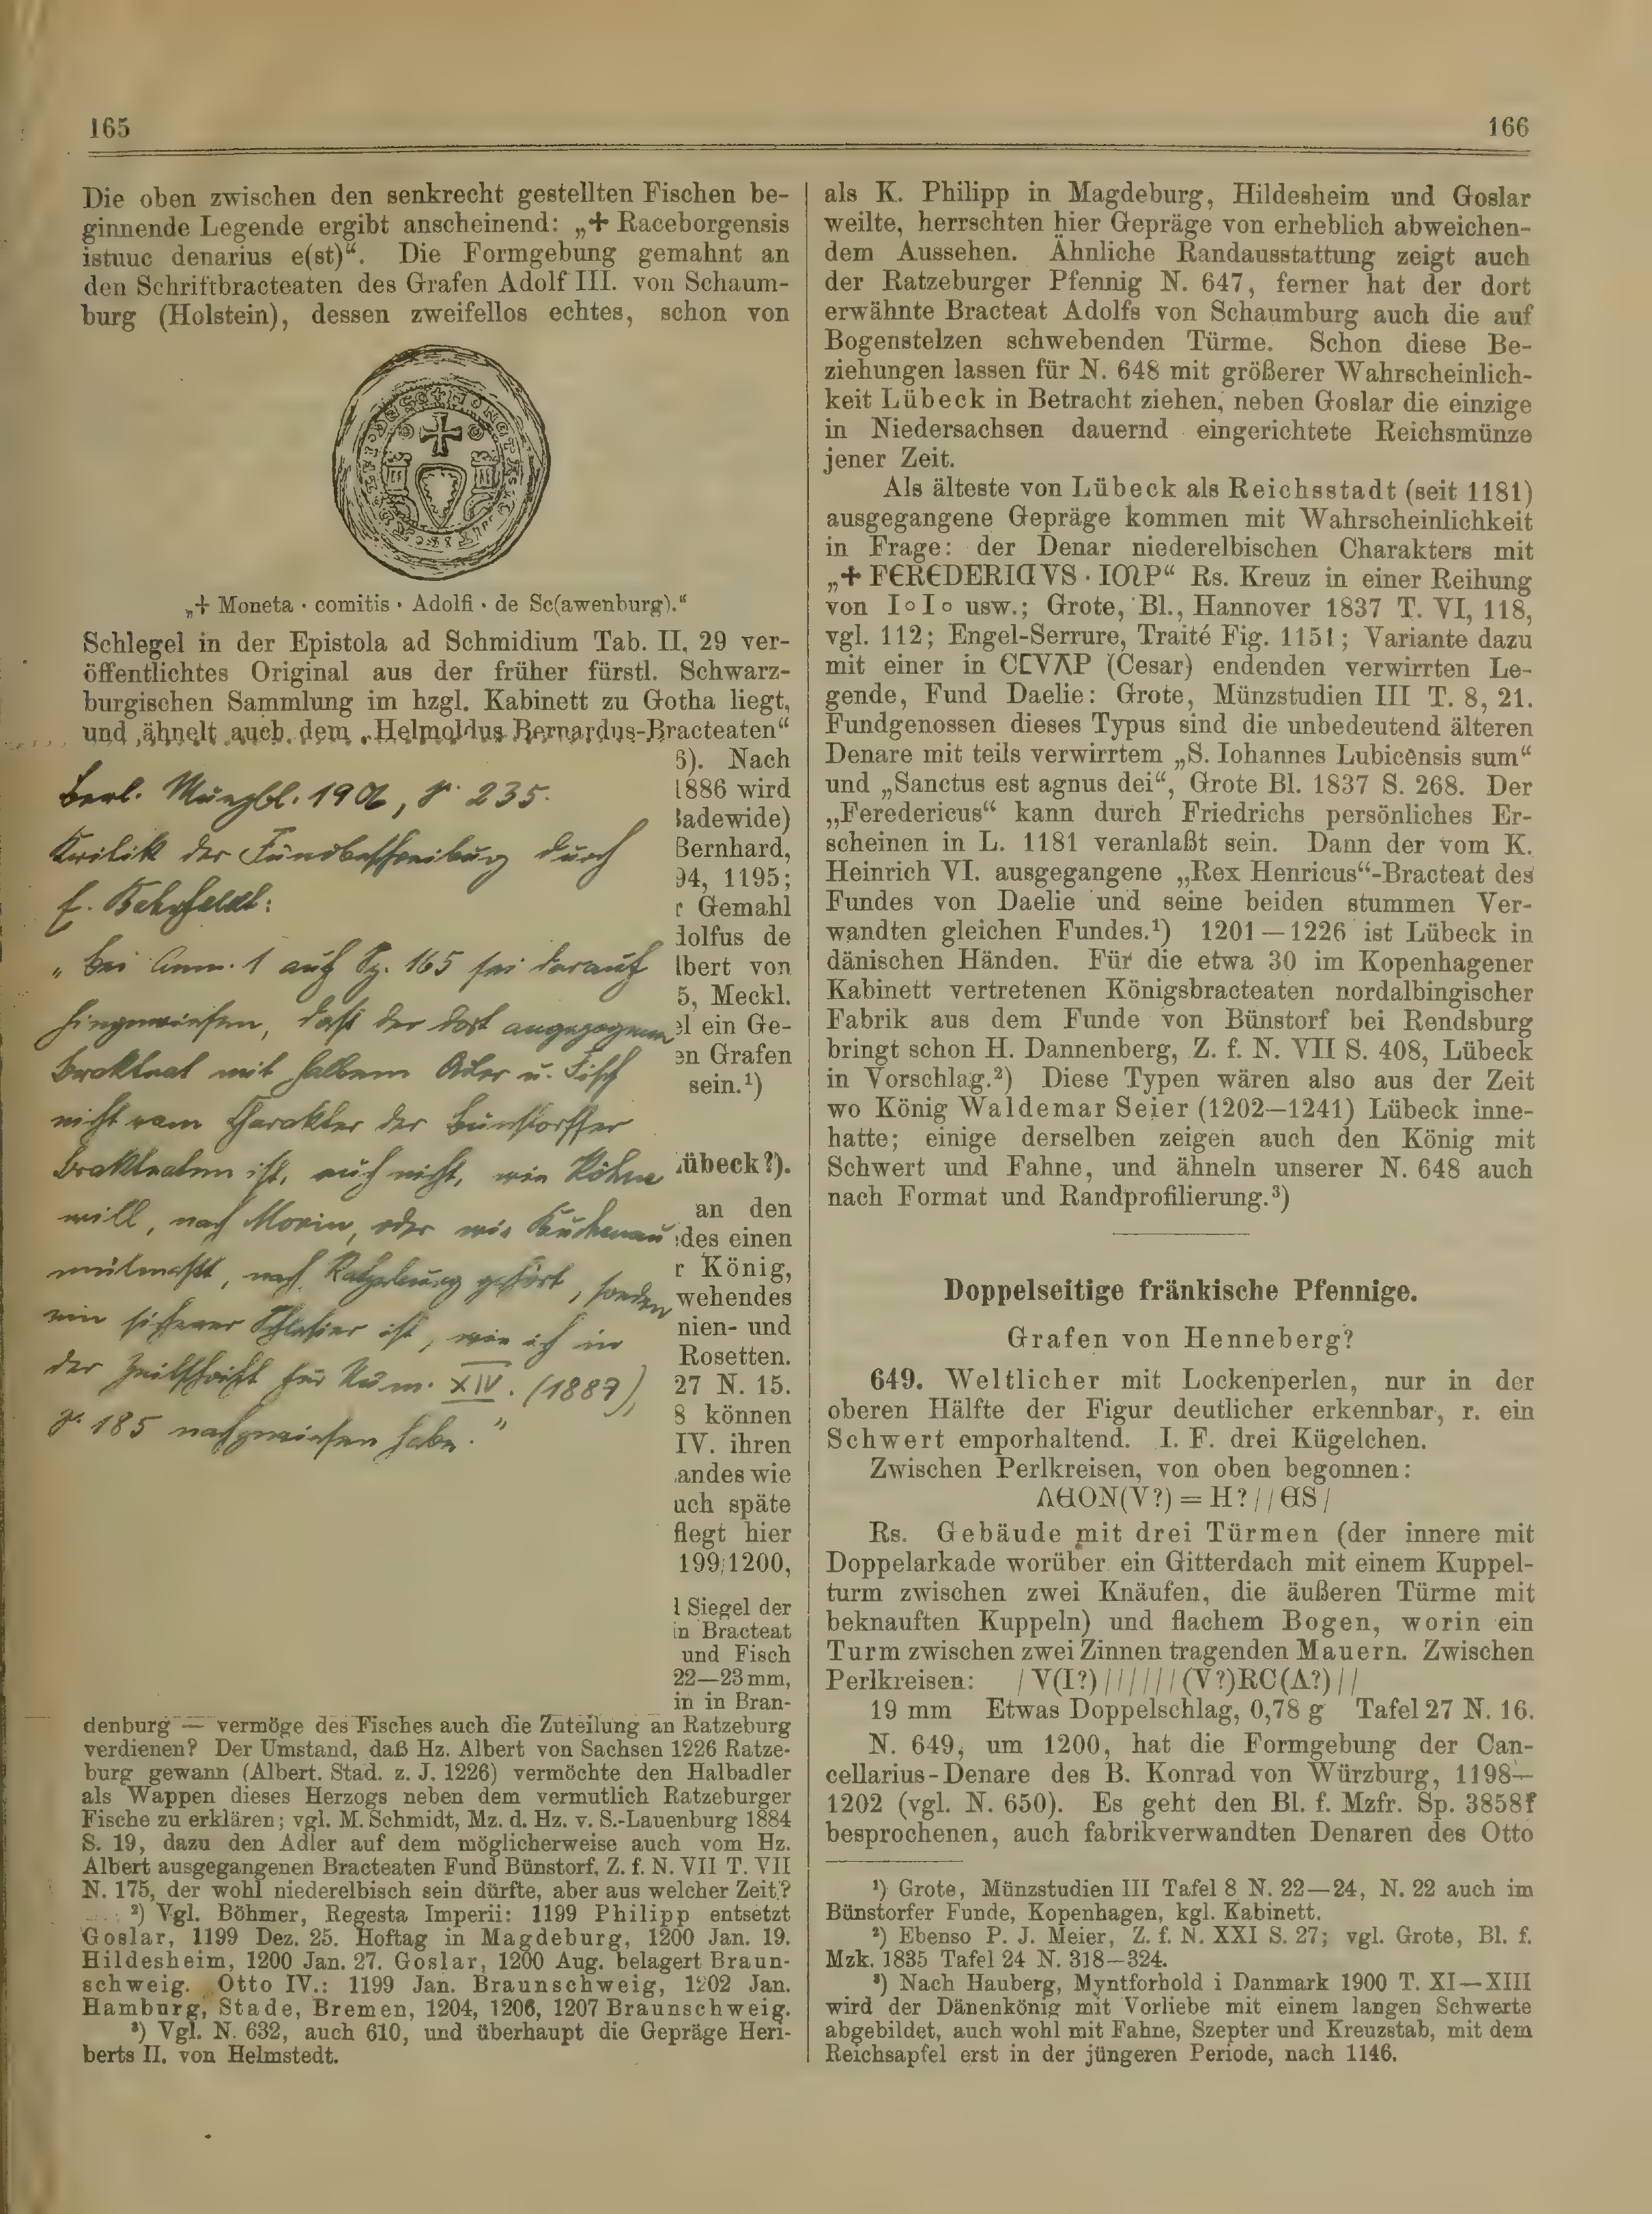 165
166
Die oben zwischen den senkrecht gestellten Fischen be-
ginnende Legende ergibt anscheinend: „+ Raceborgensis
istuuc denarius e(st)“. Die Formgebung gemahnt an
den Schriftbracteaten des Grafen Adolf III. von Schaum-
burg (Holstein), dessen zweifellos echtes, schon von
„+ Moneta · comitis · Adolfi · de Sc(awenburg).“
Schlegel in der Epistola ad Schmidium Tab. II, 29 ver-
öffentlichtes Original aus der früher fürstl. Schwarz-
burgischen Sammlung im hzgl. Kabinett zu Gotha liegt,
und ähnelt auch dem „Helmoldus Bernardus-Bracteaten“
Berl. Münzbl. 1906, S. 235.
Kritik der Fundbeschreibung durch
E. Bahrfeldt:
„Bei Anm. 1 auf Sp. 165 sei darauf
hingewiesen, daß der dort angezogene
Brakteat mit halbem Adler u. Fisch
nicht vom Charakter der Bünstorffer
Brakteaten ist, auch nicht, wie Köhne
will, nach Morin, oder wie Buchenau
mutmaßt, nach Ratzeburg gehört, sondern
ein sicherer Schlesier ist, wie ich in
der Zeitschrift für Num. XIV. (1887),
S. 185 nachgewiesen habe.“
6). Nach
1886 wird
adewide)
Bernhard,
94, 1195;
r Gemahl
dolfus de
lbert von
5, Meckl.
el ein Ge-
en Grafen
sein.¹)
übeck?).
an den
des einen
r König,
wehendes
nien- und
Rosetten.
27 N. 15.
8 können
IV. ihren
andes wie
uch späte
flegt hier
199/1200,
l Siegel der
in Bracteat
und Fisch
22—23 mm,
in in Bran-
denburg — vermöge des Fisches auch die Zuteilung an Ratzeburg
verdienen? Der Umstand, daß Hz. Albert von Sachsen 1226 Ratze-
burg gewann (Albert. Stad. z. J. 1226) vermöchte den Halbadler
als Wappen dieses Herzogs neben dem vermutlich Ratzeburger
Fische zu erklären; vgl. M. Schmidt, Mz. d. Hz. v. S.-Lauenburg 1884
S. 19, dazu den Adler auf dem möglicherweise auch vom Hz.
Albert ausgegangenen Bracteaten Fund Bünstorf, Z. f. N. VII T. VII
N. 175, der wohl niederelbisch sein dürfte, aber aus welcher Zeit?
²) Vgl. Böhmer, Regesta Imperii: 1199 Philipp entsetzt
Goslar, 1199 Dez. 25. Hoftag in Magdeburg, 1200 Jan. 19.
Hildesheim, 1200 Jan. 27. Goslar, 1200 Aug. belagert Braun-
schweig. Otto IV.: 1199 Jan. Braunschweig, 1202 Jan.
Hamburg, Stade, Bremen, 1204, 1206, 1207 Braunschweig.
³) Vgl. N. 632, auch 610, und überhaupt die Gepräge Heri-
berts II. von Helmstedt.
als K. Philipp in Magdeburg, Hildesheim und Goslar
weilte, herrschten hier Gepräge von erheblich abweichen-
dem Aussehen. Ähnliche Randausstattung zeigt auch
der Ratzeburger Pfennig N. 647, ferner hat der dort
erwähnte Bracteat Adolfs von Schaumburg auch die auf
Bogenstelzen schwebenden Türme. Schon diese Be-
ziehungen lassen für N. 648 mit größerer Wahrscheinlich-
keit Lübeck in Betracht ziehen, neben Goslar die einzige
in Niedersachsen dauernd eingerichtete Reichsmünze
jener Zeit.
Als älteste von Lübeck als Reichsstadt (seit 1181)
ausgegangene Gepräge kommen mit Wahrscheinlichkeit
in Frage: der Denar niederelbischen Charakters mit
„+ FEREDERICVS · IMP“ Rs. Kreuz in einer Reihung
von I∘I∘ usw.; Grote, Bl., Hannover 1837 T. VI, 118,
vgl. 112; Engel-Serrure, Traité Fig. 1151; Variante dazu
mit einer in CEVAP (Cesar) endenden verwirrten Le-
gende, Fund Daelie: Grote, Münzstudien III T. 8, 21.
Fundgenossen dieses Typus sind die unbedeutend älteren
Denare mit teils verwirrtem „S. Iohannes Lubicensis sum“
und „Sanctus est agnus dei“, Grote Bl. 1837 S. 268. Der
„Feredericus“ kann durch Friedrichs persönliches Er-
scheinen in L. 1181 veranlaßt sein. Dann der vom K.
Heinrich VI. ausgegangene „Rex Henricus“-Bracteat des
Fundes von Daelie und seine beiden stummen Ver-
wandten gleichen Fundes.¹) 1201—1226 ist Lübeck in
dänischen Händen. Für die etwa 30 im Kopenhagener
Kabinett vertretenen Königsbracteaten nordalbingischer
Fabrik aus dem Funde von Bünstorf bei Rendsburg
bringt schon H. Dannenberg, Z. f. N. VII S. 408, Lübeck
in Vorschlag.²) Diese Typen wären also aus der Zeit
wo König Waldemar Seier (1202—1241) Lübeck inne-
hatte; einige derselben zeigen auch den König mit
Schwert und Fahne, und ähneln unserer N. 648 auch
nach Format und Randprofilierung.³)
Doppelseitige fränkische Pfennige.
Grafen von Henneberg?
649. Weltlicher mit Lockenperlen, nur in der
oberen Hälfte der Figur deutlicher erkennbar, r. ein
Schwert emporhaltend. I. F. drei Kügelchen.
Zwischen Perlkreisen, von oben begonnen:
ΛHON(V?) = H? / / ES /
Rs. Gebäude mit drei Türmen (der innere mit
Doppelarkade worüber ein Gitterdach mit einem Kuppel-
turm zwischen zwei Knäufen, die äußeren Türme mit
beknauften Kuppeln) und flachem Bogen, worin ein
Turm zwischen zwei Zinnen tragenden Mauern. Zwischen
Perlkreisen: / V(I?) / / / / / / (V?)RC(A?) / /
19 mm Etwas Doppelschlag, 0,78 g Tafel 27 N. 16.
N. 649, um 1200, hat die Formgebung der Can-
cellarius-Denare des B. Konrad von Würzburg, 1198—
1202 (vgl. N. 650). Es geht den Bl. f. Mzfr. Sp. 3858f
besprochenen, auch fabrikverwandten Denaren des Otto
¹) Grote, Münzstudien III Tafel 8 N. 22—24, N. 22 auch im
Bünstorfer Funde, Kopenhagen, kgl. Kabinett.
²) Ebenso P. J. Meier, Z. f. N. XXI S. 27; vgl. Grote, Bl. f.
Mzk. 1835 Tafel 24 N. 318—324.
³) Nach Hauberg, Myntforhold i Danmark 1900 T. XI—XIII
wird der Dänenkönig mit Vorliebe mit einem langen Schwerte
abgebildet, auch wohl mit Fahne, Szepter und Kreuzstab, mit dem
Reichsapfel erst in der jüngeren Periode, nach 1146.